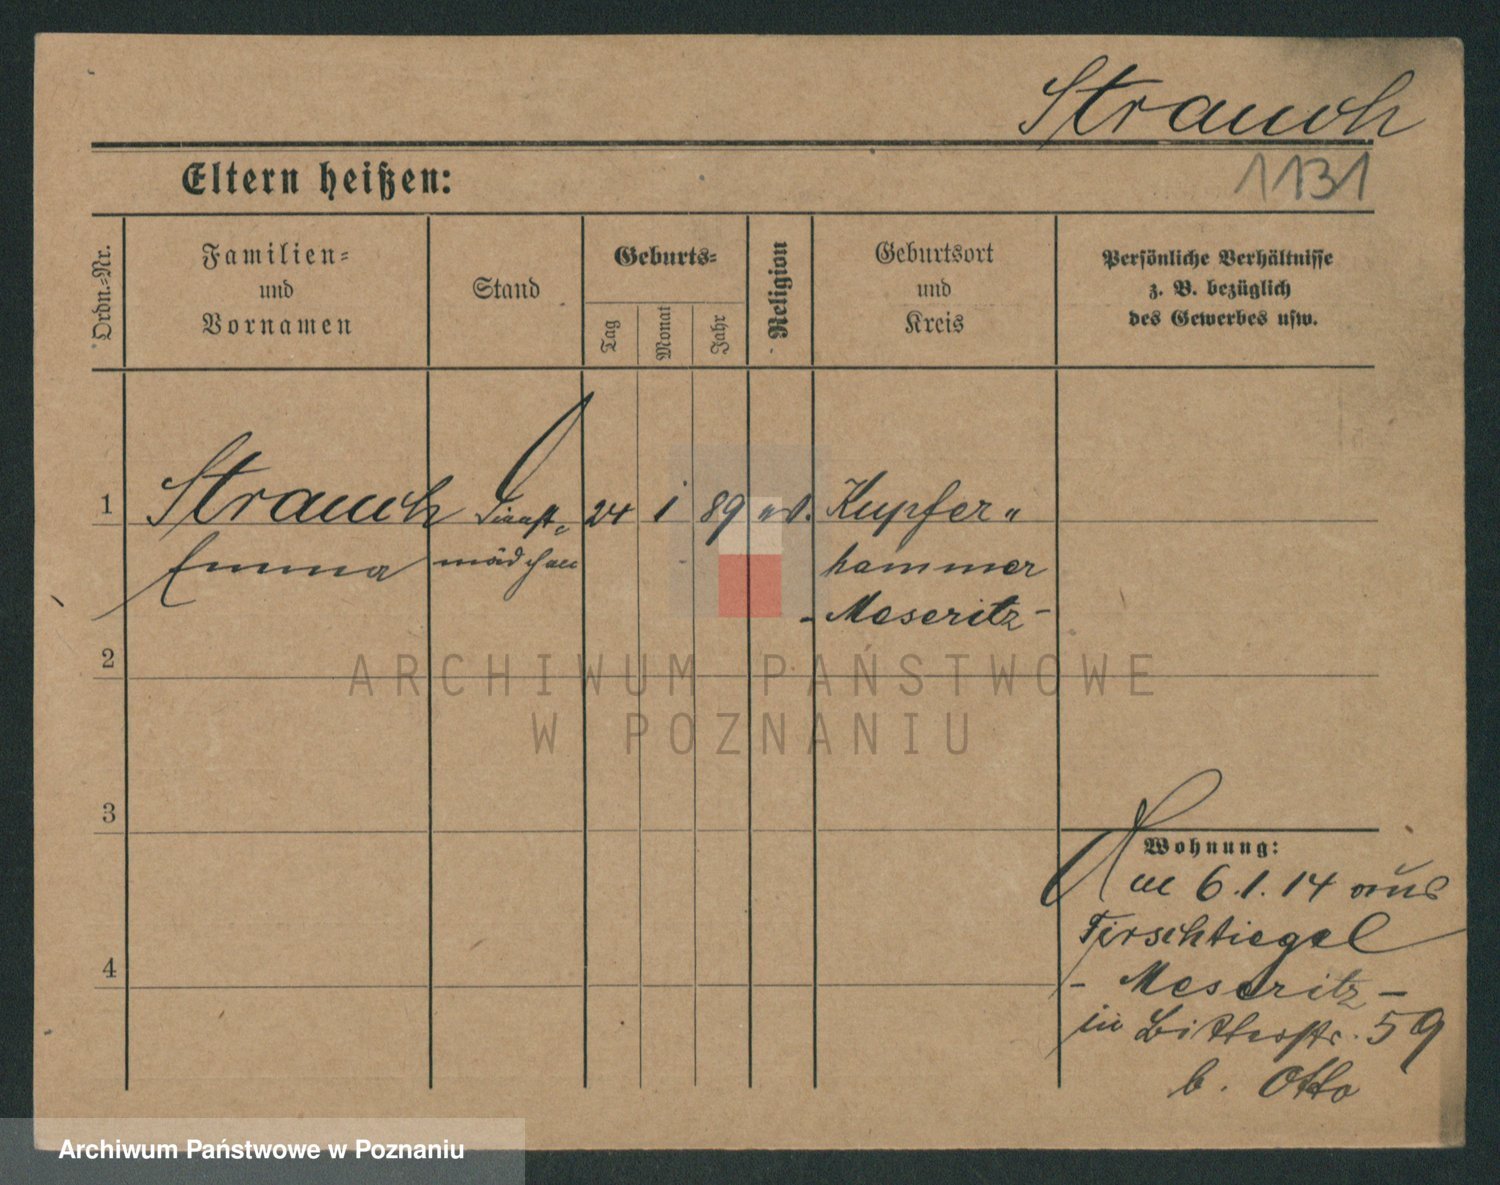 Strauch
1131
Eltern heißen:
Ordn.-Nr.
Familien-
und
Vornamen
Stand
Geburts-
Tag
Monat
Jahr
Religion
Geburtsort
und
Kreis
Persönliche Verhältnisse
z. B. bezüglich
des Gewerbes usw.
1 Strauch Dienst- 24 1 89 ev. Kupfer-
Emma mädchen hammer
- Meseritz -
2
ARCHIWUM PAŃSTWOWE
W POZNANIU
3
Wohnung:
6.1.14 aus
Tirschtiegel
- Meseritz -
in Bitterstr. 59
b. Otto
4
Archiwum Państwowe w Poznaniu